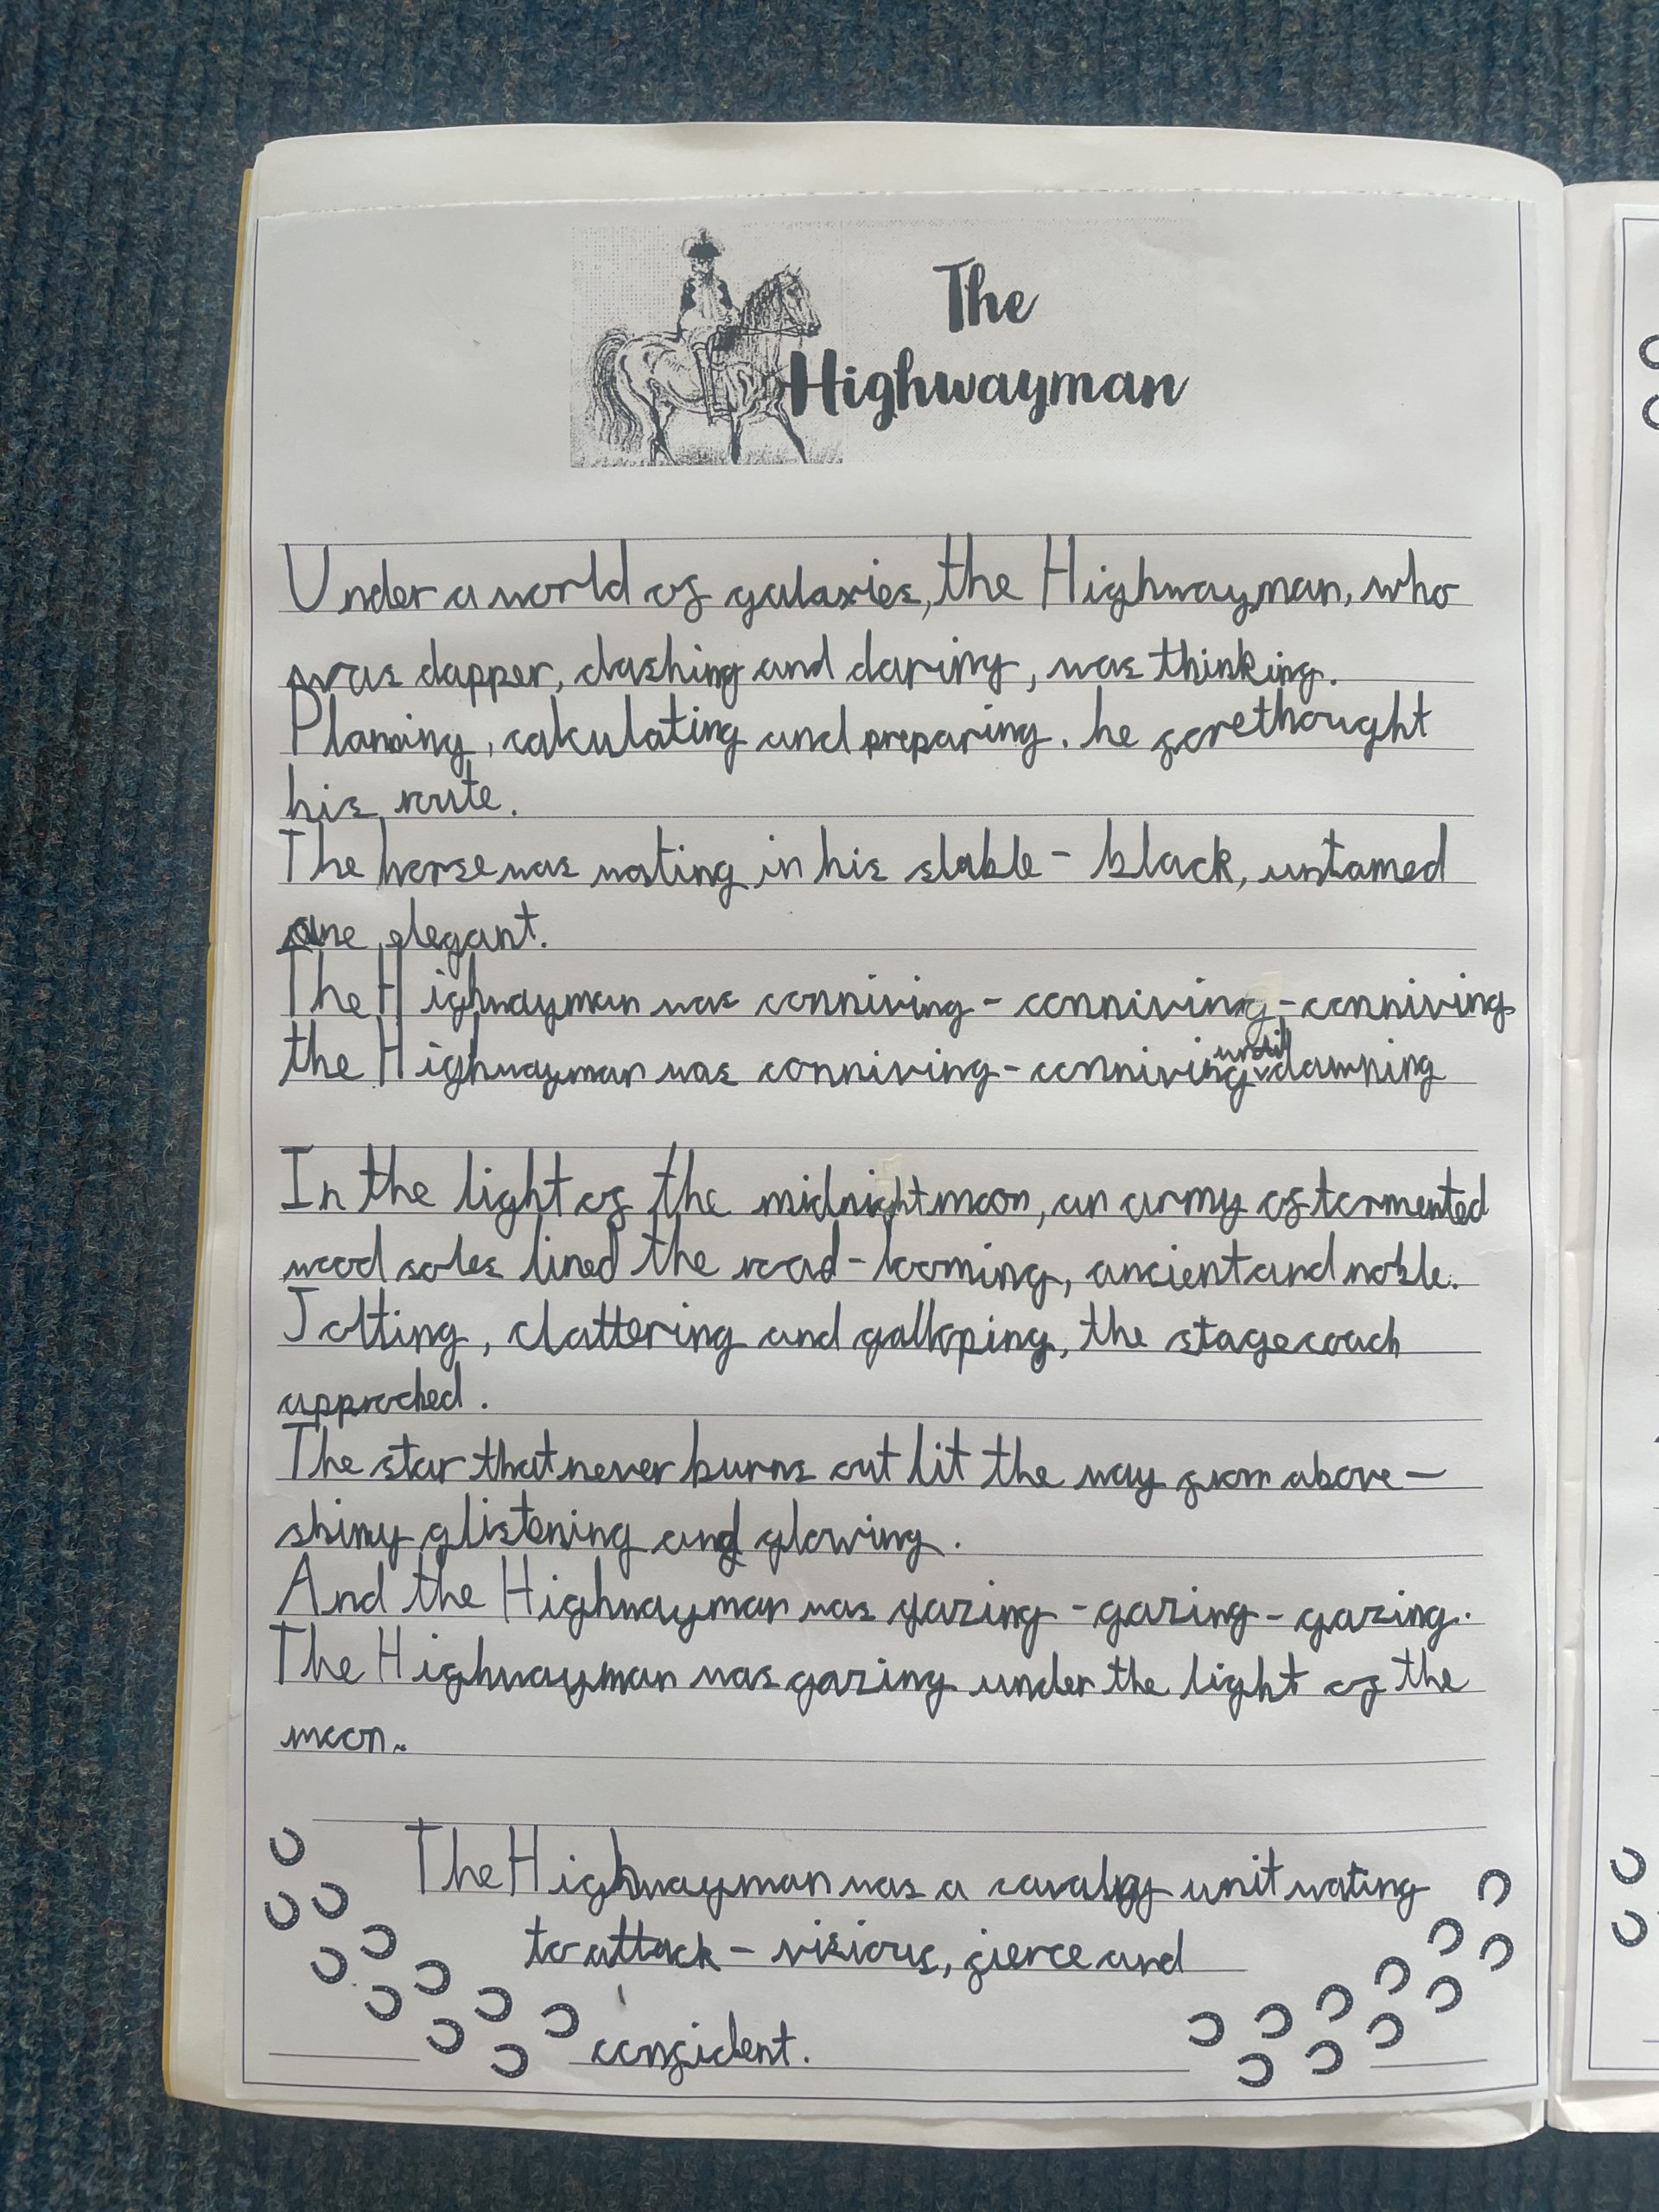 The
Highwayman
Under a world of galaxies, the Highwayman, who
was dapper, dashing and daring, was thinking.
Planning, calculating and preparing, he forethought
his route.
The horse was wating in his stable - black, untamed
ane elegant.
The Highwayman was conniving - conniving - conniving
the Highwayman was conniving - conniving until dawning
In the light of the midnight moon, an army of tormented
wood soles lined the road - looming, ancient and noble.
Jolting, clattering and galloping, the stagecoach
approched.
The star that never burns out lit the way from above -
shiny glistening and glowing.
And the Highwayman was gazing - gazing - gazing.
The Highwayman was gazing under the light of the
moon.
The Highwayman was a cavalry unit wating
to attack - visious, fierce and
confident.